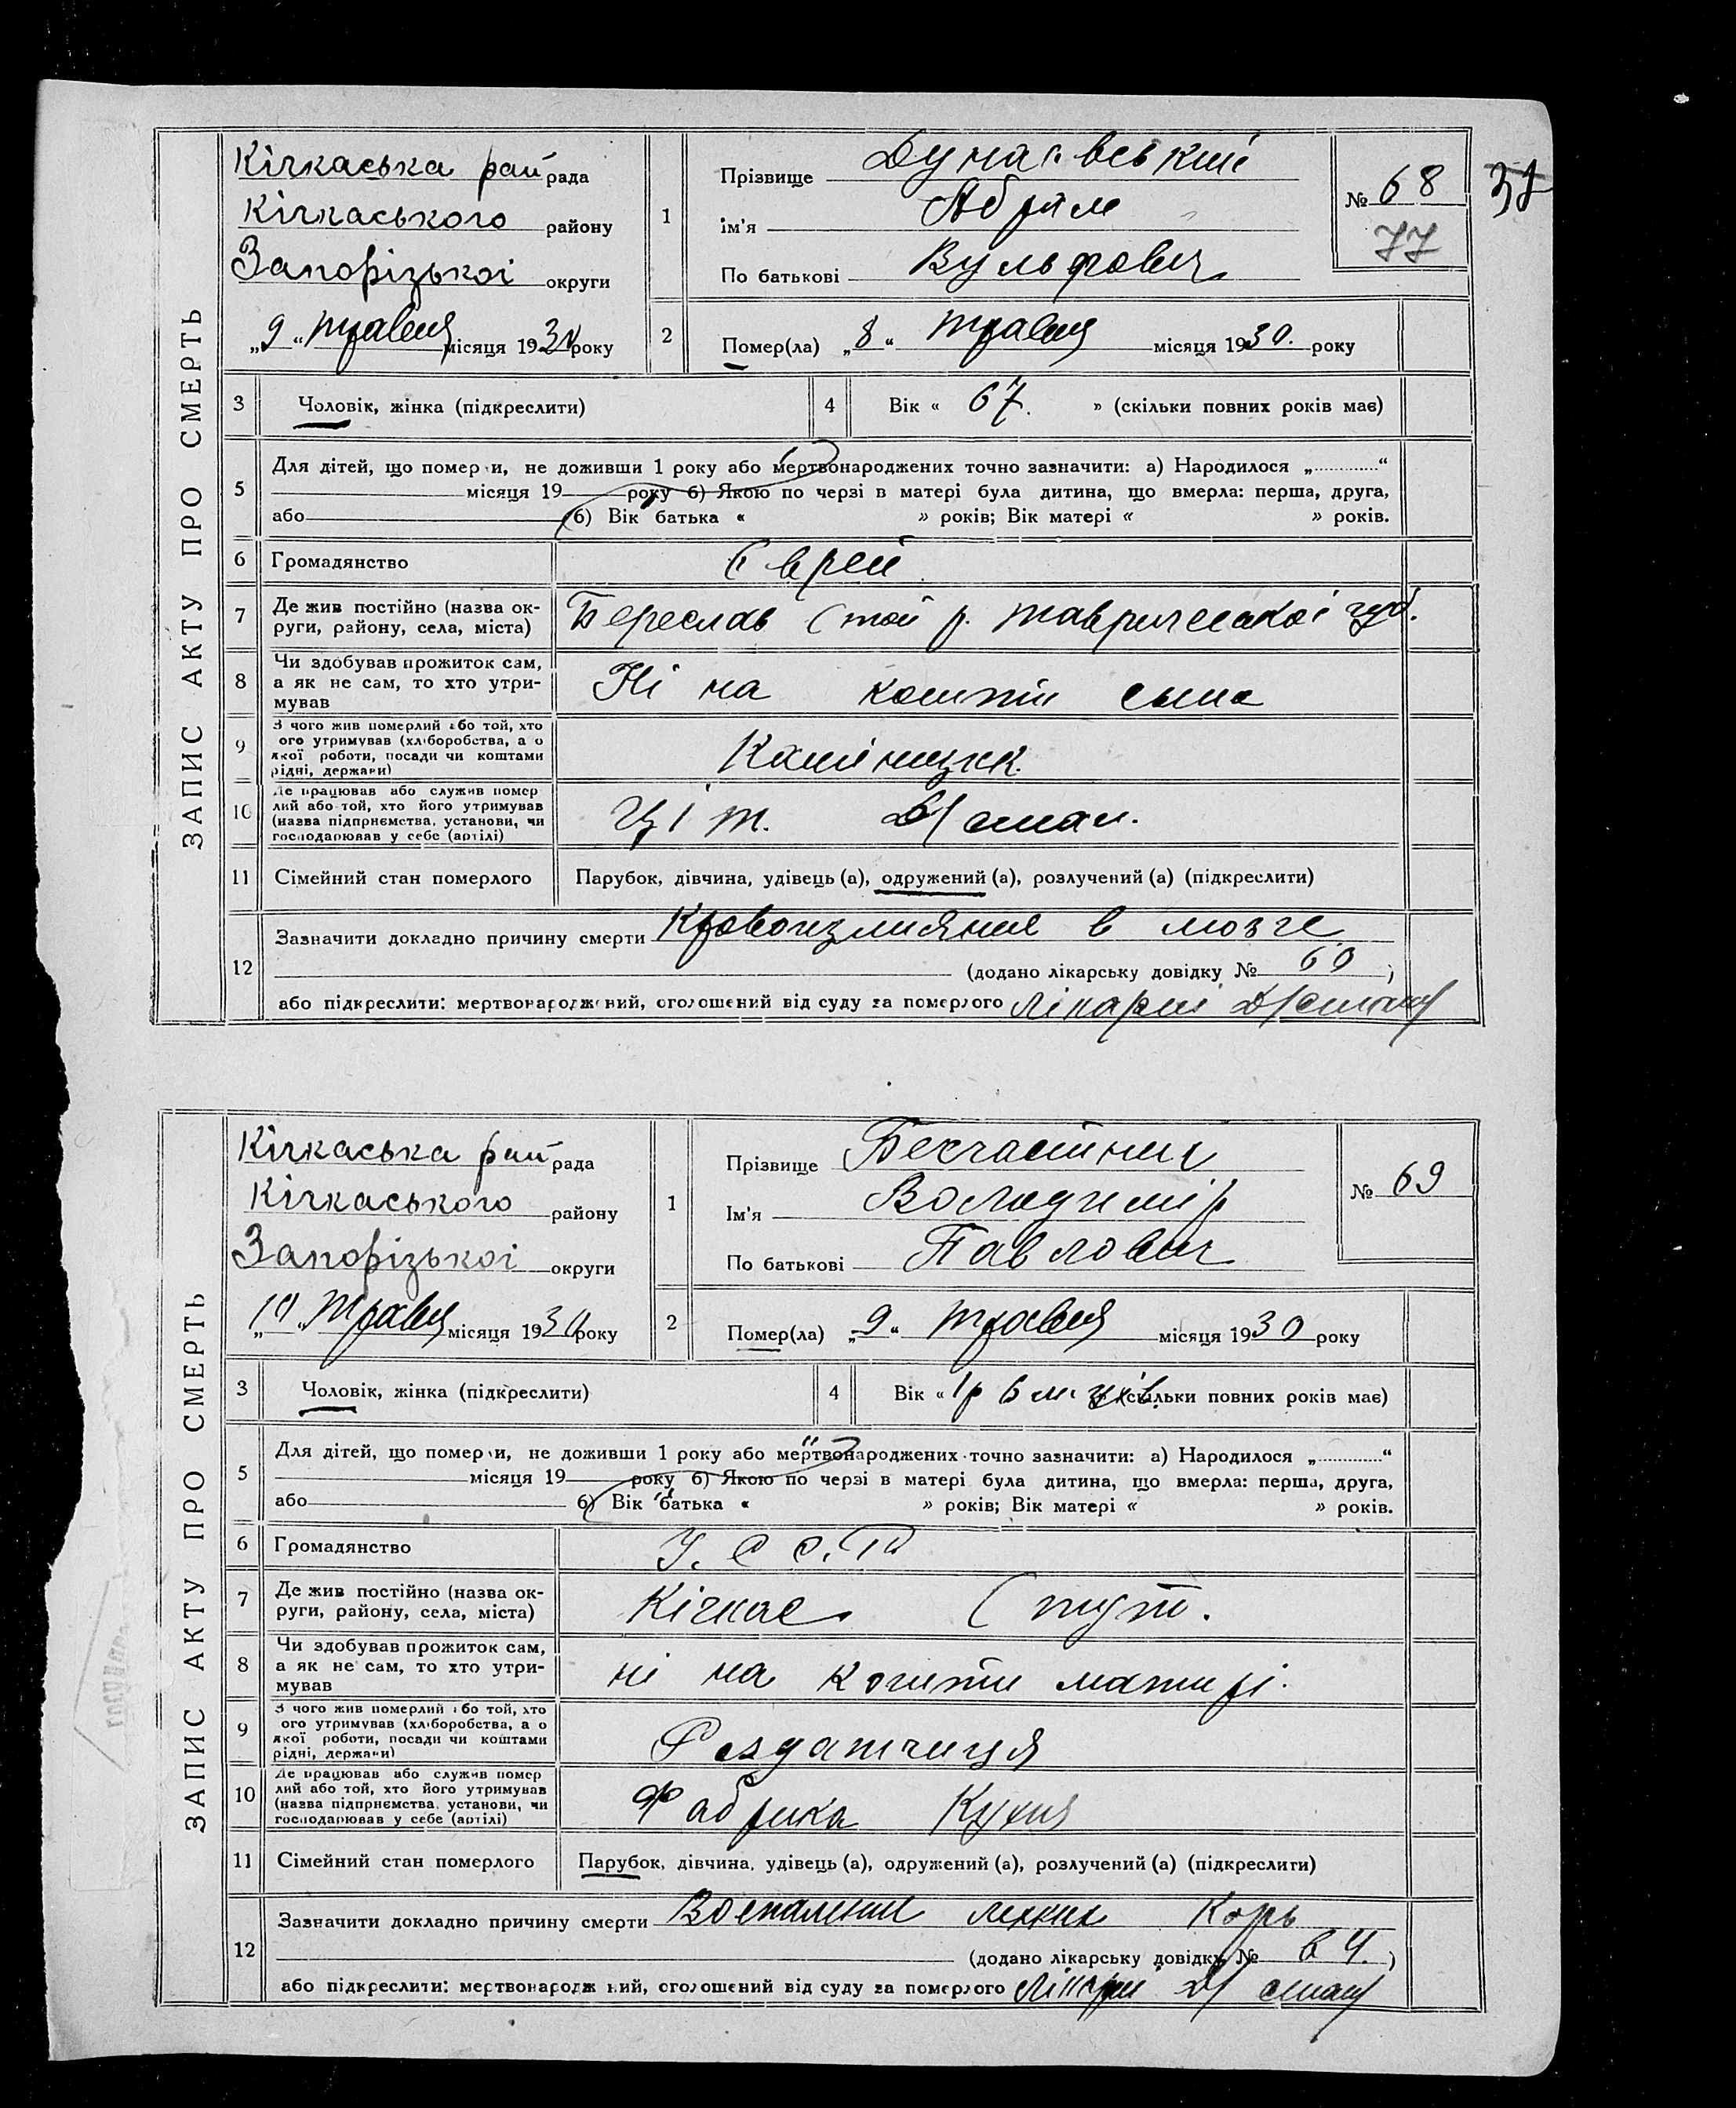 ЗАПИС АКТУ ПРО СМЕРТЬ
Кічкаська рай рада
Кічкаського району
Запорізької округи
„9“ травня місяця 1930 року
1 Прізвище Дунаєвський
ім'я Абрам
По батькові Вульфович
№ 68
77
2 Помер(ла) „8“ травня місяця 1930. року
3 Чоловік, жінка (підкреслити)
4 Вік « 67. » (скільки повних років має)
5 Для дітей, що померли, не доживши 1 року або мертвонароджених точно зазначити: а) Народилося „ “
місяця 19 року б) Якою по черзі в матері була дитина, що вмерла: перша, друга,
або б) Вік батька « » років; Вік матері « » років.
6 Громадянство Єврей
7 Де жив постійно (назва ок-
руги, району, села, міста) Береслав (той р. Таврической губ.
8 Чи здобував прожиток сам,
а як не сам, то хто утри-
мував Ні на кошти сына
9 З чого жив померлий або той, хто
ого утримував (хліборобства, а о
якої роботи, посади чи коштами
рідні, держави)
10 Де працював або служив помер
лий або той, хто його утримував
(назва підприємства, установи, чи
господарював у себе (артілі)
11 Сімейний стан померлого Парубок, дівчина, удівець (а), одружений (а), розлучений (а) (підкреслити)
12 Зазначити докладно причину смерти Кровоизлияния в мозге
(додано лікарську довідку № 60 )
або підкреслити: мертвонароджений, оголошений від суду за померлого Лікарні
ЗАПИС АКТУ ПРО СМЕРТЬ
Кічкаська рай рада
Кічкаського району
Запорізької округи
„10“ травня місяця 1930 року
1 Прізвище Бесчастний
Ім'я Володимір
По батькові Павлович
№ 69
2 Помер(ла) „9“ травня місяця 1930 року
3 Чоловік, жінка (підкреслити)
4 Вік « 1р 6 (скільки повних років має)
5 Для дітей, що померли, не доживши 1 року або мертвонароджених точно зазначити: а) Народилося „ “
місяця 19 року б) Якою по черзі в матері була дитина, що вмерла: перша, друга,
або б) Вік батька « » років; Вік матері « » років.
6 Громадянство У.С.С.Р.
7 Де жив постійно (назва ок-
руги, району, села, міста) Кічкас (тут.
8 Чи здобував прожиток сам,
а як не сам, то хто утри-
мував ні на кошти матирі.
9 З чого жив померлий або той, хто
ого утримував (хліборобства, а о
якої роботи, посади чи коштами
рідні, держави) Роздатчиця
10 Де працював або служив помер
лий або той, хто його утримував
(назва підприємства, установи, чи
господарював у себе (артілі) Фабрика Кухня
11 Сімейний стан померлого Парубок, дівчина, удівець (а), одружений (а), розлучений (а) (підкреслити)
12 Зазначити докладно причину смерти Воспалении легких Корь
(додано лікарську довідку № 64. )
або підкреслити: мертвонароджений, оголошений від суду за померлого Лікарні